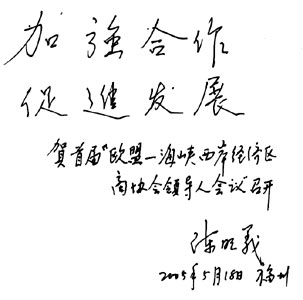 加強合作
促進发展
賀首届“欧盟—海峡西岸经济区
商协会領导人会议”召开
陈明義
2005年5月18日 福州